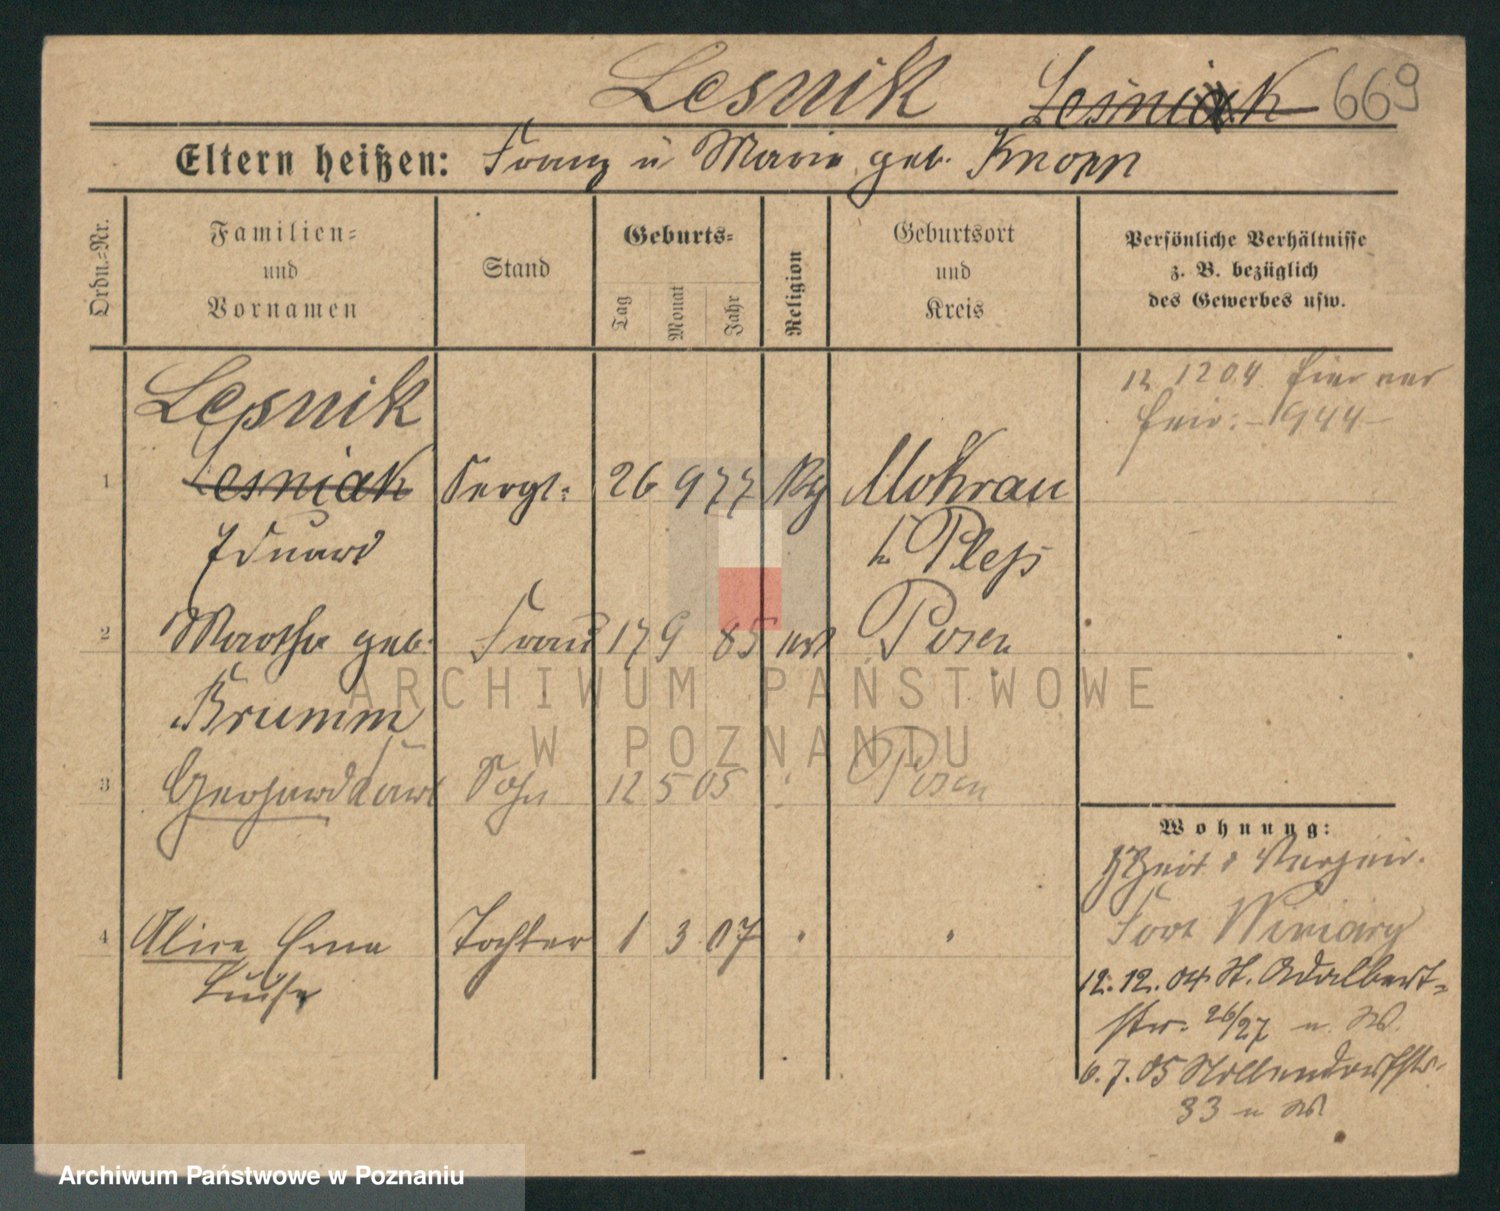 Lesnik Lesniak 669
Eltern heißen: Franz u Marie geb. Knopp
Ordn.-Nr.
Familien-
und
Vornamen
Stand
Geburts-
Tag
Monat
Jahr
Religion
Geburtsort
und
Kreis
Persönliche Verhältnisse
z. B. bezüglich
des Gewerbes usw.
12 12 04 hier ver
heir: -944-
Lesnik
1 Lesniak Sergt: 26 9 77 Mokrau
Eduard Pleß
2 Martha geb: Frau 17 9 85 Posen
Krumm
3 Gerhard Kurt Sohn 12 5 05 Posen
4 Alice Erna Tochter 1 3 07
Luise
Wohnung:
Fort Winiary
12. 12. 04 St. Adalbert-
str. 26/27 n. W.
6. 7. 05 Nollendorfstr.
33 n W.
ARCHIWUM PAŃSTWOWE
W POZNANIU
Archiwum Państwowe w Poznaniu